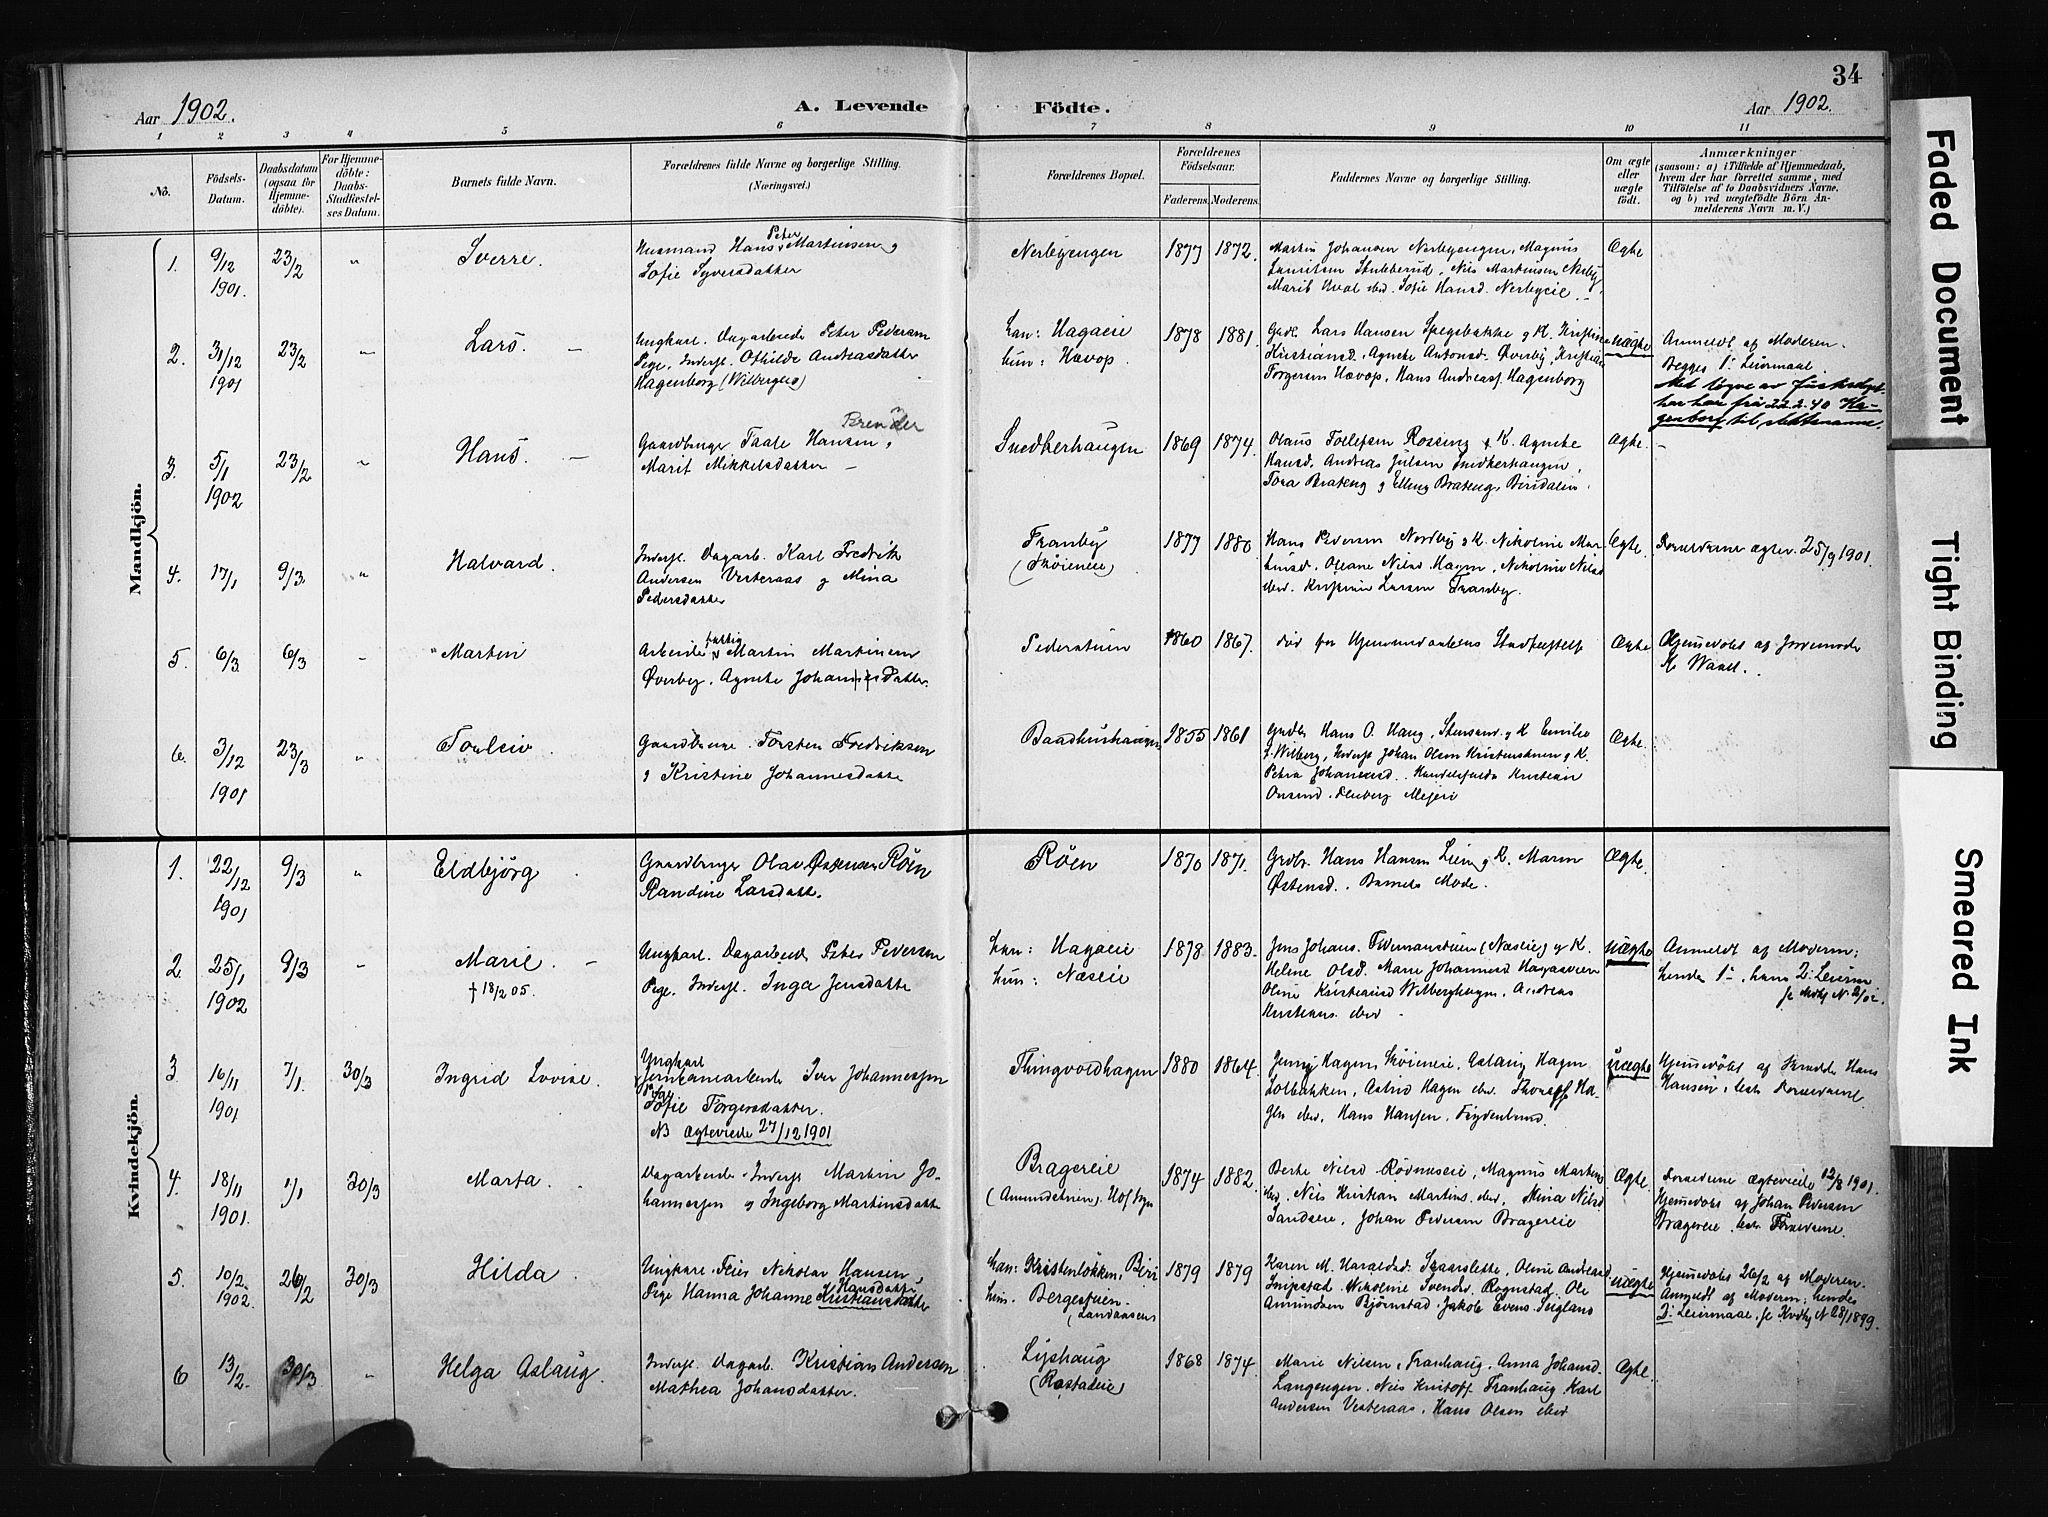 34
Aar 1902.
A. Levende
Födte.
Aar 1902.
1 2 3 4 5 6 7 8 9 10 11
No.
Födsels-
Datum.
Daabsdatum
(ogsaa for
Hjemme-
döbte).
For Hjemme-
döbte:
Daabs-
Stadfæstel-
ses Datum.
Barnets fulde Navn.
Forældrenes fulde Navne og borgerlige Stilling.
(Næringsvei.)
Forældrenes Bopæl.
Forældrenes
Födselsaar.
Faderens.
Moderens.
Faddernes Navne og borgerlige Stilling.
Om ægte
eller
uægte
født.
Anmærkninger
(saasom: a) i Tilfælde af Hjemmedaab,
hvem der har forrettet samme, med
Tilföielse af to Daabsvidners Navne,
og b) ved uægtefödte Börn An-
melderens Navn m. V.)
Mandkjön.
1. 9/12 1901. 23/2 " Sverre.
Husmand Hans Peter Martinsen og
Sofie Syversdatter
Nerbyengen 1877 1872.
Martin Johansen Nerbyengen, Magnus
Lauritsen Stubberud, Nils Martinsen Nerby,
Marit Hval ibid. Sofie Hansd. Nerbyeie.
Ægte
2. 31/12 1901 23/2 " Lars. —
Ungkarl. Dagarbeider Peter Pedersen
Pige, Inderst. Othilde Andreasdatter
Hagenborg (Wilbergeie)
han: Hagaeie
hun: Hævop.
1878 1881.
Grdb. Lars Hansen Spegsbakke og K. Kristine
Kristiansd., Agnethe Antonsd. Øverby, Kristian
Torgersen Hævop, Hans Andreass. Hagenborg
uægte
Anmeldt af Moderen.
Begges 1ste Leiermaal.
Med løyve av fylkes
har han frå 22.2.40 Ha-
genborg til slektsnamn.
3. 5/1 1902 23/2 " Hans. —
Brenden
Gaardbruger Taale Hansen,
Marit Mikkelsdatter —
Snedkerhaugen 1869 1874.
Olaus Tollefsen Rossing & K. Agnethe
Hansd. Andreas Julsen Snedkerhaugen,
Tora Brateng og Elling Brateng, Biridalen.
Ægte. —
4. 17/1 9/3 " Halvard.
Inderst. Dagarb. Karl Fredrik
Andersen Vesteraas og Mina
Pedersdatter
Franby
(Skøieneie)
1877 1880.
Hans Pedersen Nordby og K. Nikoline Mar-
tinsd, Oleane Nilsd Hagen, Nikoline Nilsd
ibid. Kristian Larsen Franby.
Ægte. Forældrene ægtev. 25/9 1901.
5. 6/3 6/3 " Martin
Arbeider Martin Martinsen
Øverby, Agnethe Johannesdatter.
Pederstuen 1860 1867.
død før Hjemmedaabens Stadfæstelse
Ægte Hjemmedøbt af Jordemoder
6. 3/12 1901 23/3 " Torleiv
Gaardbruger Torsten Fredriksen
og Kristine Johannesdatter
Baadhushaugen 1855 1861
Grdb. Hans O. Haug, Stensund og K Emilie
Wilberg, Inderst Johan Olsen Kristenstuen og K.
Petra Johannesd. Handelsfuldm Kristian
Meieri
Ægte.
Kvindekjön.
1. 22/12 1901 9/3 " Eldbjörg
Gaardbruger Olav Østensen Røen
Randine Larsdatter.
Røen 1870 1871.
Grdbr. Hans Hansen Lien og K. Maren
Østensd. Barnets Moder.
Ægte.
2. 25/1 1902 9/3 " Marie. —
† 18/2 05.
Ungkarl. Dagarbeider Peter Pedersen
Pige. Inderst. Inga Jensdatter
han: Hagaeie
hun: Næseie
1878 1883.
Jens Johans. Pedermanstuen (Næseie) og K.
Helene Olsd. Marie Johannesd Hagaeie
Oline Kristiansd Wilberghagen, Andreas
Kristians. ibid —
uægte
Anmeldt af Moderen;
hendes 1ste, hans 2. Leierm
3. 16/11 1901 7/1. 30/3 Ingrid Lovise.
Ungkarl
Jernbanearbeider Iver Johannessen
Pige
Sofie Torgersdatter.
NB Ægteviede 27/12 1901
Thingvoldhagen 1880 1864.
Jenny Hagen, Skøieneie, Aslaug Hagen
Lolbakken, Astrid Hagen ibid. Thoralf Ha-
gen ibid, Hans Hansen, Frydenlund.
uægte
Hjemmedøbt af Smedde Hans
Hansen, bekr. Forældrene.
4. 18/11 1901. 1/1 30/3 Marta.
Dagarbeider Inderst Martin Jo-
hannessen og Ingeborg Martinsdatter
Bragereie
(Amundstuen). Hof Sogn
1874 1882.
Berte Nilsd Rødneseie, Magnus Martins
ibid. Nils Kristian Martins. ibid, Mina Nilsd
Sandseie, Johan Pedersen Bragereie
Ægte.
Forældrene Ægteviede 12/8 1901.
Hjemmedøbt af Johan Pedersen
Bragereie, bekr. Forældrene.
5. 10/2. 1902. 26/2 30/3 Hilda.
Ungkarl. Feier Nikolai Hansen
Hansdatter
Pige Hanna Johanne Kristiansdatter
han: Kristenløkken, Biri
hun. Bergestuen.
(Landaasen)
1879 1879
Karen M. Haraldsd. Skaarslette, Oline Andreasd
Snipstad. Nikoline Svendsd. Rognstad. Ole
Amundsen Bjørnstad. Jakob Evens. Seigland
uægte
Hjemmedøbt 26/2 af Moderen.
Anmeldt af Moderen; hendes
2. Leiermaal, se Kvdkj N 28/1899.
6 13/2. 30/3 " Helga Aslaug.
Inderst. Dagarb. Kristian Andersen
Mathea Johansdatter.
Lyshaug
(Rostadeie)
1868 1874.
Marie Nilsen, Franhaug, Anna Johansd.
Langengen. Nils Kristoff. Franhaug Karl
Andersen Vesteraas, Hans Olsen ibid
Ægte.
Faded Document
Tight Binding
Smeared Ink